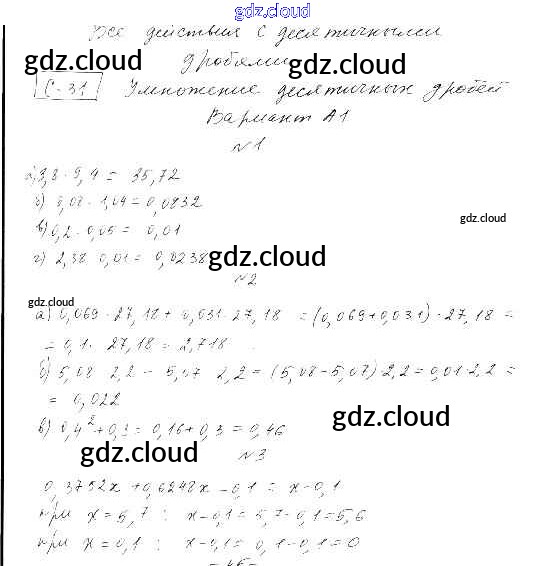 gdz.cloud
Все действия с десятичными
gdz.cloud дробями gdz.cloud
С-31 Умножение десятичных дробей
Вариант А1
№1
а) 3,8 · 9,4 = 35,72
б) 0,08 · 1,04 = 0,0832
gdz.cloud
в) 0,2 · 0,05 = 0,01
г) 2,38 · 0,01 = 0,0238 gdz.cloud
№2
gdz.cloud
а) 0,069 · 27,18 + 0,031 · 27,18 = (0,069 + 0,031) · 27,18 =
= 0,1 · 27,18 = 2,718
б) 5,08 · 2,2 - 5,07 · 2,2 = (5,08 - 5,07) · 2,2 = 0,01 · 2,2 =
= 0,022
gdz.cloud
в) 0,4² + 0,3 = 0,16 + 0,3 = 0,46
gdz.cloud
№3
0,3752x + 0,6248x - 0,1 = x - 0,1
при x = 5,7 : x - 0,1 = 5,7 - 0,1 = 5,6
при x = 0,1 : x - 0,1 = 0,1 - 0,1 = 0